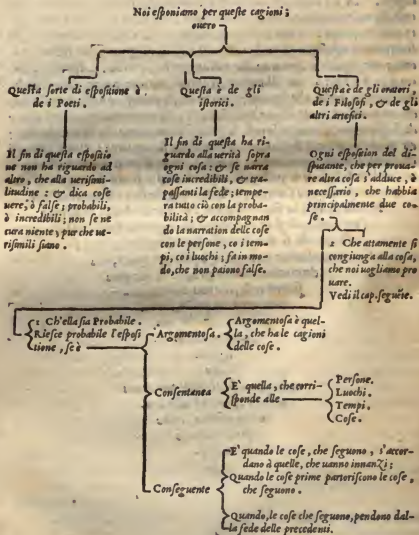 Noi esponiamo per queste cagioni;
ouero
Questa sorte di espositione è
de i Poeti.
Questa è de gli
istorici.
Questa è de gli oratori,
de i Filosofi, & de gli
altri artefici.
Il fin di questa espositio
ne non ha riguardo ad
altro, che alla uerisimi-
litudine: & dica cose
uere, ò false; probabili,
ò incredibili; non se ne
cura niente; pur che ue-
risimili siano.
Il fin di questa ha ri-
guardo alla uerità sopra
ogni cosa: & se narra
cose incredibili, & tra-
passanti la fede; tempe-
ra tutto ciò con la proba-
bilità; & accompagnan
do la narration delle cose
con le persone, co i tem-
pi, co i luochi; fa in mo-
do, che non paiono false.
Ogni esposition del di-
sputante, che per proua-
re altra cosa s'adduce, è
necessario, che habbia
principalmente due co-
se.
2 Che attamente si
congiunga alla cosa,
che noi uogliamo pro
uare.
Vedi il cap. seguēte.
1 Ch'ella sia Probabile.
Riesce probabile l'esposi
tione, se è
Argomentosa.
Argomentosa è quel-
la, che ha le cagioni
delle cose.
Consentanea
E' quella, che corri-
sponde alle
Persone.
Luochi.
Tempi.
Cose.
Conseguente
E' quando le cose, che seguono, s'accor-
dano à quelle, che uanno innanzi;
Quando le cose prime partoriscono le cose,
che seguono.
Quando, le cose che seguono, pendono dal-
la fede delle precedenti.